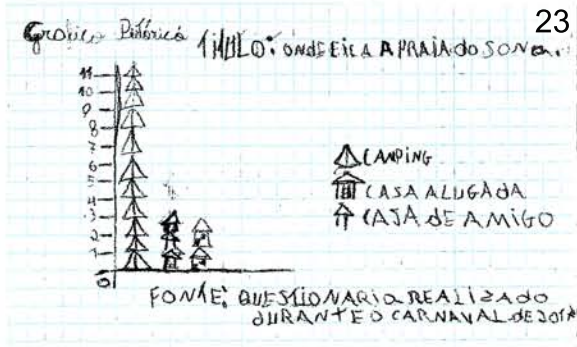 23
Gráfico Pitórico
TÍTULO: ONDE FICA A PRAIA DO SONO.
11
10
9
8
7
6
5
4
3
2
1
0
CAMPING
CASA ALUGADA
CASA DE AMIGO
FONTE: QUESTIONARIO REALIZADO
DURANTE O CARNAVAL DE